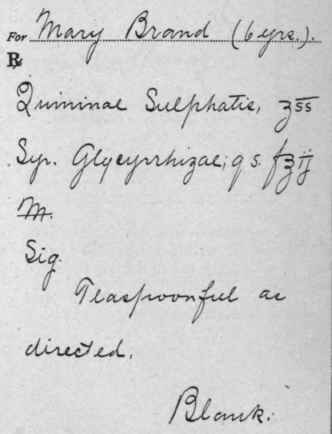 For Mary Brand (6 yrs.).
℞
Quininae Sulphatis, ʒss
Syr. Glycyrrhizae, q s. fʒij
M.
Sig.
Teaspoonful as
directed.
Blank.